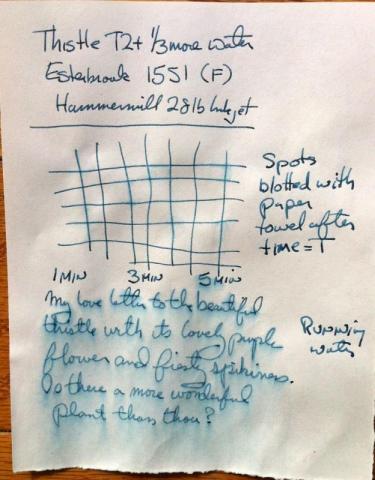 Thistle T2 + 1/3 more water
Esterbrook 1551 (F)
Hammermill 28lb Inkjet
Spots
blotted with
paper
towel after
time = T
1 MIN 3 MIN 5 MIN
My love letter to the beautiful
thistle with its lovely purple
flower and fiesty spikiness.
Is there a more wonderful
plant than thou?
Running
water